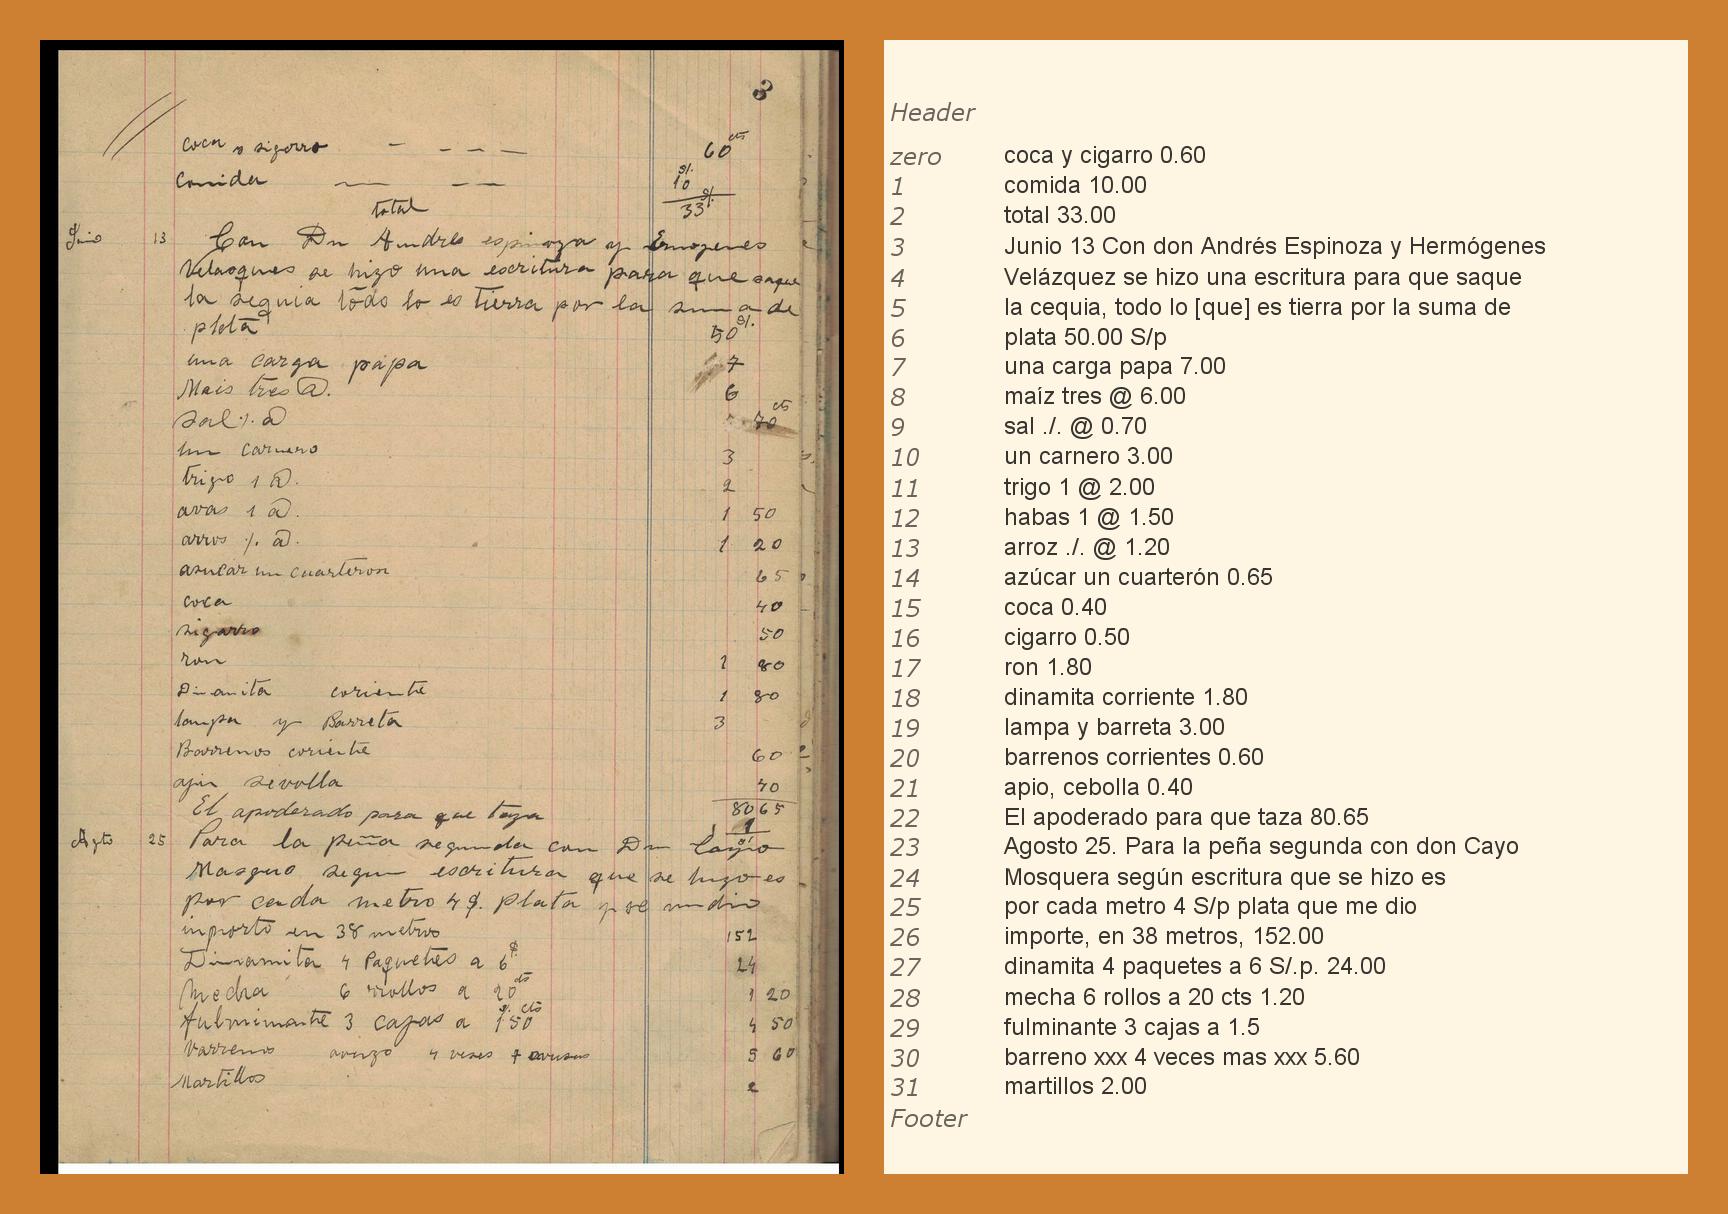 3
coca y sigarro — — — — 60 cts
Comida — — — S/. 10
total 33 S/.
Junio 13 Con Dn Andrés espinoza y Ermogenes
Velasques se hizo una escritura para que saque
la sequia tōdo lo es tierra por la suma de
plata 50 S/.
una carga papa 7
Mais tres @. 6
Sal ./. @ 70 cts
un carnero 3
trigo 1 @. 2
avas 1 @. 1 50
arros ./. @. 1 20
asucar un cuarteron 65
coca 40
sigarro 50
ron 1 80
Dinamita coriente 1 80
lampa y Barreta 3
Barrenos coriente 60
sevolla 40
El apoderado para que 80 65
Agto 25 Para la peña segunda con Dn
segun escritura que se hizo es
por cada metro 4 plata
inporto en 38 metros 152
Dinamita 4 Paquetes a 6 24
Mecha 6 rrollos a 20 cts 1 20
fulminante 3 cajas a 1 50 cts 4 50
barreno 4 veses 5 60
Martillos 2
Header
zero coca y cigarro 0.60
1 comida 10.00
2 total 33.00
3 Junio 13 Con don Andrés Espinoza y Hermógenes
4 Velázquez se hizo una escritura para que saque
5 la cequia, todo lo [que] es tierra por la suma de
6 plata 50.00 S/p
7 una carga papa 7.00
8 maíz tres @ 6.00
9 sal ./. @ 0.70
10 un carnero 3.00
11 trigo 1 @ 2.00
12 habas 1 @ 1.50
13 arroz ./. @ 1.20
14 azúcar un cuarterón 0.65
15 coca 0.40
16 cigarro 0.50
17 ron 1.80
18 dinamita corriente 1.80
19 lampa y barreta 3.00
20 barrenos corrientes 0.60
21 apio, cebolla 0.40
22 El apoderado para que taza 80.65
23 Agosto 25. Para la peña segunda con don Cayo
24 Mosquera según escritura que se hizo es
25 por cada metro 4 S/p plata que me dio
26 importe, en 38 metros, 152.00
27 dinamita 4 paquetes a 6 S/.p. 24.00
28 mecha 6 rollos a 20 cts 1.20
29 fulminante 3 cajas a 1.5
30 barreno xxx 4 veces mas xxx 5.60
31 martillos 2.00
Footer